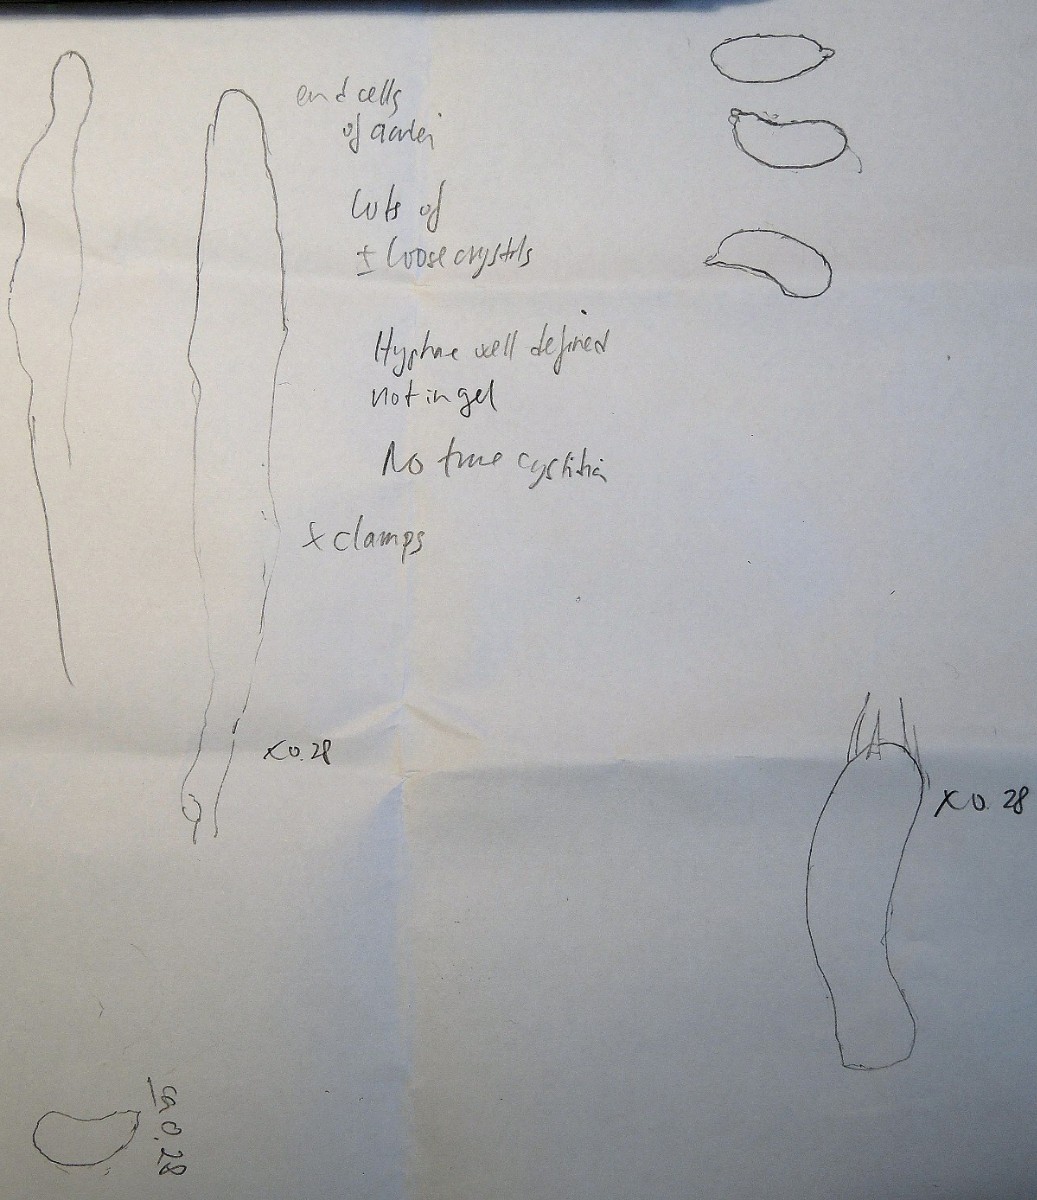 end cells
of aculei
Lots of
± loose crystals
Hyphae well defined
not in gel
No true cystidia
x clamps
x 0.28
x 0.28
ca 0.28